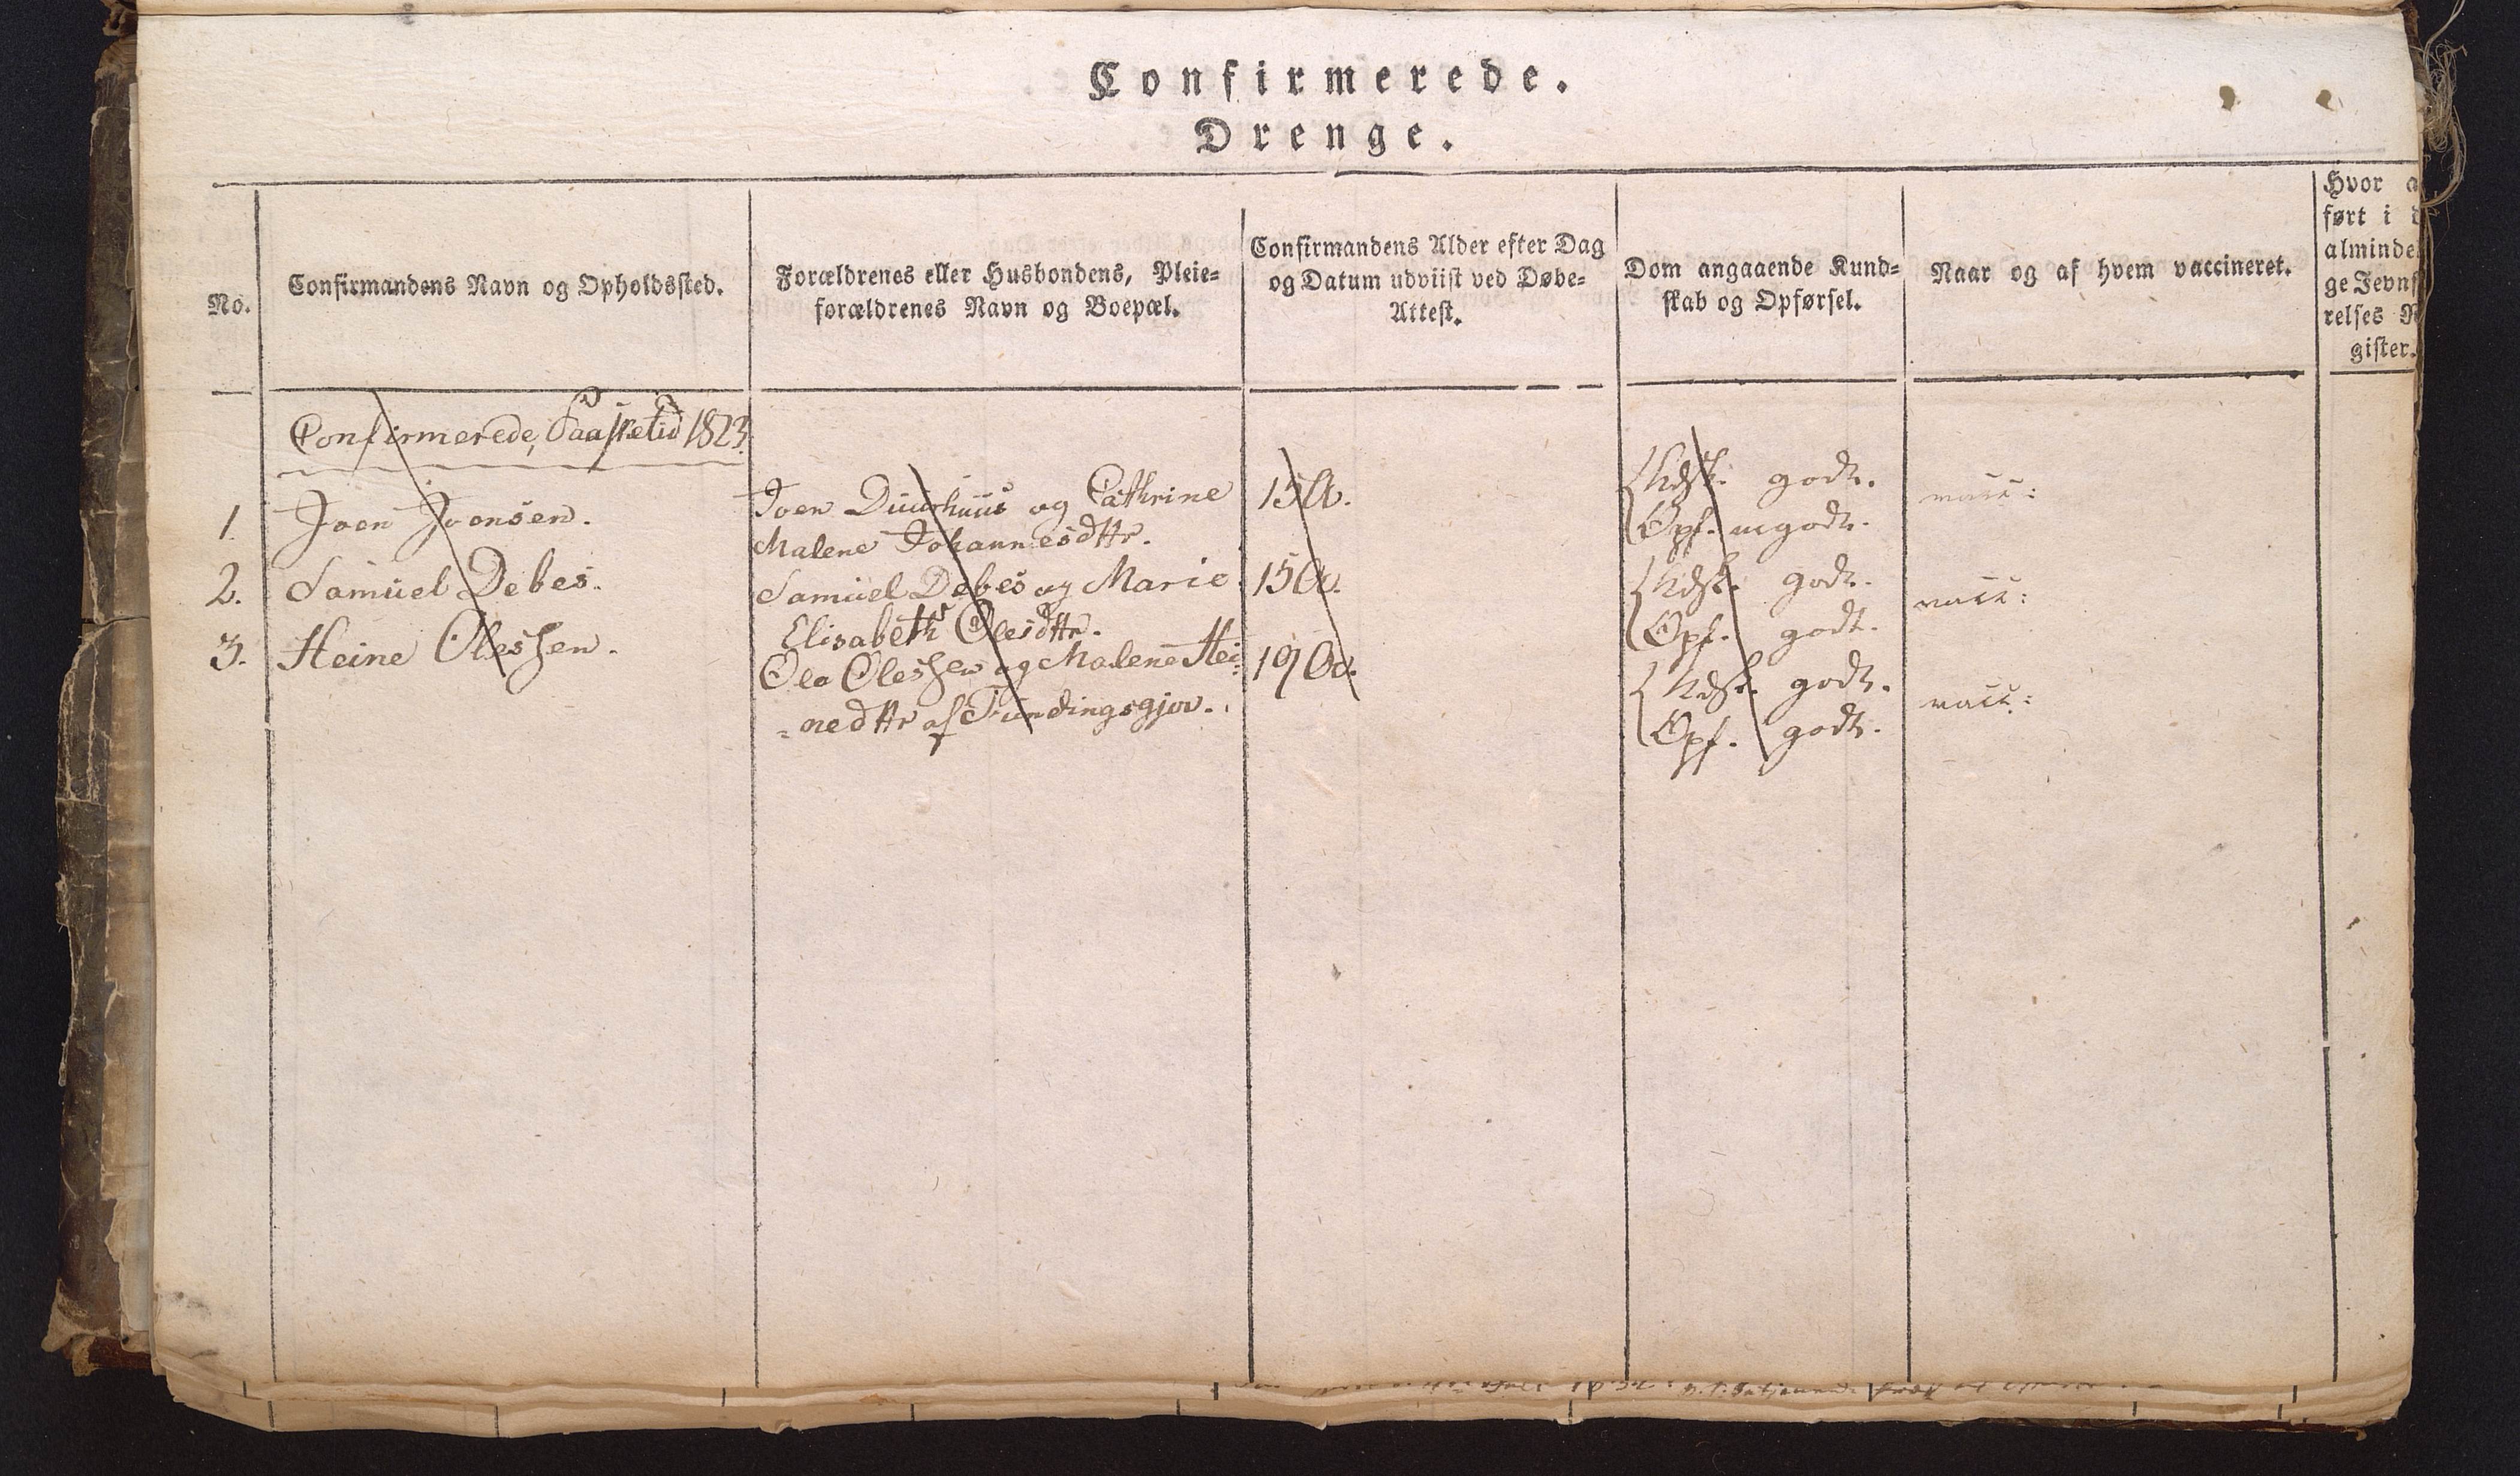 Confirmerede.
Drenge.
No.
Confirmandens Navn og Opholdssted.
Forældrenes eller Husbondens, Pleie=
forældrenes Navn og Boepæl.
Confirmandens Alder efter Dag
og Datum udviist ved Døbe=
Attest.
Dom angaaende Kund=
skab og Opførsel.
Naar og af hvem vaccineret.
Hvor a
ført i d
alminde
ge Jevnf
relses R
gister.
Confirmerede, Paasketid 1823.
1. Joen Joensen.
Joen Duurhuus og Cathrine
Malene Johannesdttr.
15 A.
Kdsk. godt.
Opf. mgodt.
vacc:
2. Samuel Debes.
Samuel Debes og Marie
Elisabeth Olesdttr.
15 A.
Kdsk. godt.
Opf. godt.
vacc:
3. Heine Olessen.
Ole Olessen og Malene Hei:
=nedttr af Fundingsgjov.
19 A.
Kdsk. godt.
Opf. godt.
vacc: